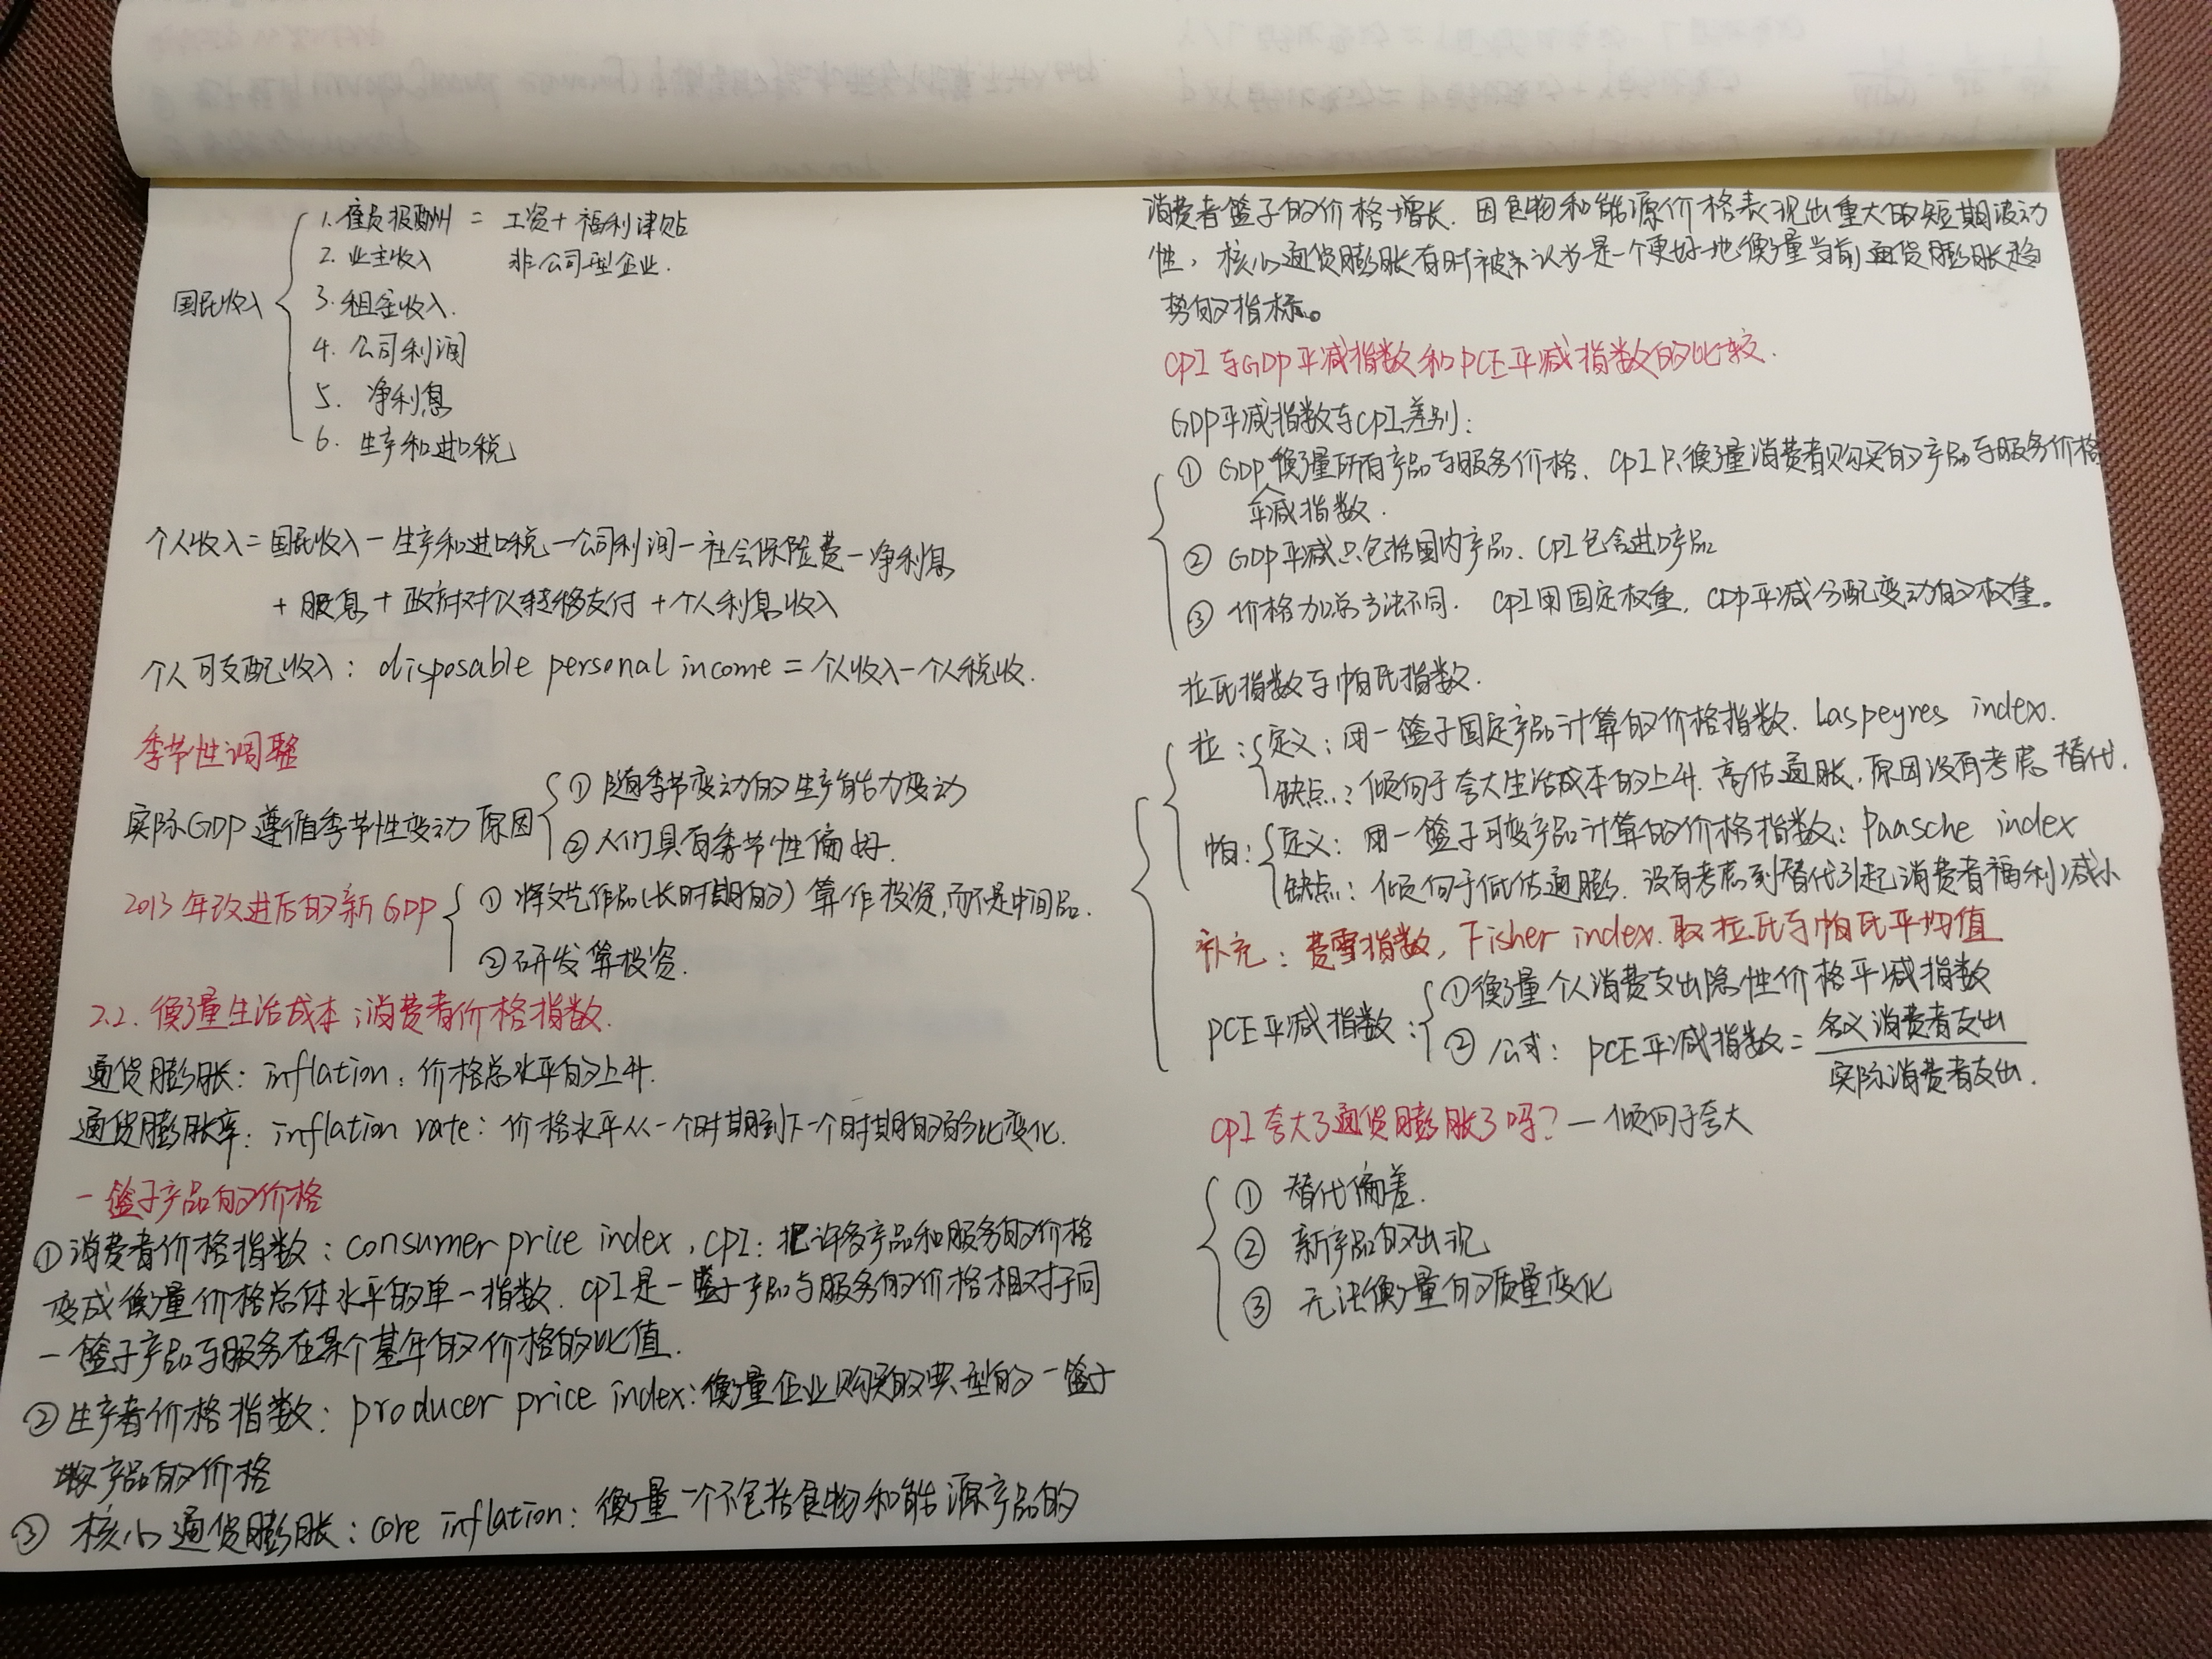 国民收入
1. 雇员报酬 = 工资+福利津贴
2. 业主收入 非公司型企业.
3. 租金收入.
4. 公司利润
5. 净利息
6. 生产和进口税
个人收入=国民收入-生产和进口税-公司利润-社会保险费-净利息
+股息+政府对个人转移支付+个人利息收入
个人可支配收入: disposable personal income = 个人收入-个人税收.
季节性调整
实际GDP遵循季节性变动 原因
① 随季节变动的生产能力变动
② 人们具有季节性偏好.
2013年改进后的新GDP
① 将文艺作品(长时期的) 算作投资,而不是中间品.
② 研发算投资.
2.2. 衡量生活成本:消费者价格指数.
通货膨胀: inflation: 价格总水平的上升.
通货膨胀率: inflation rate: 价格水平从一个时期到下一个时期的百分比变化.
一篮子产品的价格
①消费者价格指数: consumer price index, CPI: 把许多产品和服务的价格
变成衡量价格总体水平的单一指数. CPI是一篮子产品与服务的价格相对于同
一篮子产品与服务在某个基年的价格的比值.
②生产者价格指数: producer price index: 衡量企业购买的典型的一篮子
产品的价格
③ 核心通货膨胀: core inflation: 衡量一个不包括食物和能源产品的
消费者篮子的价格增长. 因食物和能源价格表现出重大的短期波动
性, 核心通货膨胀有时被认为是一个更好地衡量当前通货膨胀趋
势的指标。
CPI与GDP平减指数和PCE平减指数的比较.
GDP平减指数与CPI差别:
① GDP衡量所有产品与服务价格. CPI只衡量消费者购买的产品与服务价格
平减指数.
② GDP平减只包括国内产品. CPI包含进口产品
③ 价格加总方法不同. CPI用固定权重, GDP平减分配变动的权重。
拉氏指数与帕氏指数.
拉: 定义: 用一篮子固定产品计算的价格指数. Laspeyres index.
缺点: 倾向于夸大生活成本的上升. 高估通胀, 原因没有考虑替代.
帕: 定义: 用一篮子可变产品计算的价格指数: Paasche index
缺点: 倾向于低估通膨. 没有考虑到替代引起消费者福利减小
补充: 费雪指数, Fisher index. 取拉氏与帕氏平均值
PCE平减指数: ①衡量个人消费支出隐性价格平减指数
② 公式: PCE平减指数= 名义消费者支出
实际消费者支出.
CPI夸大了通货膨胀了吗? — 倾向于夸大
① 替代偏差.
② 新产品的出现
③ 无法衡量的质量变化